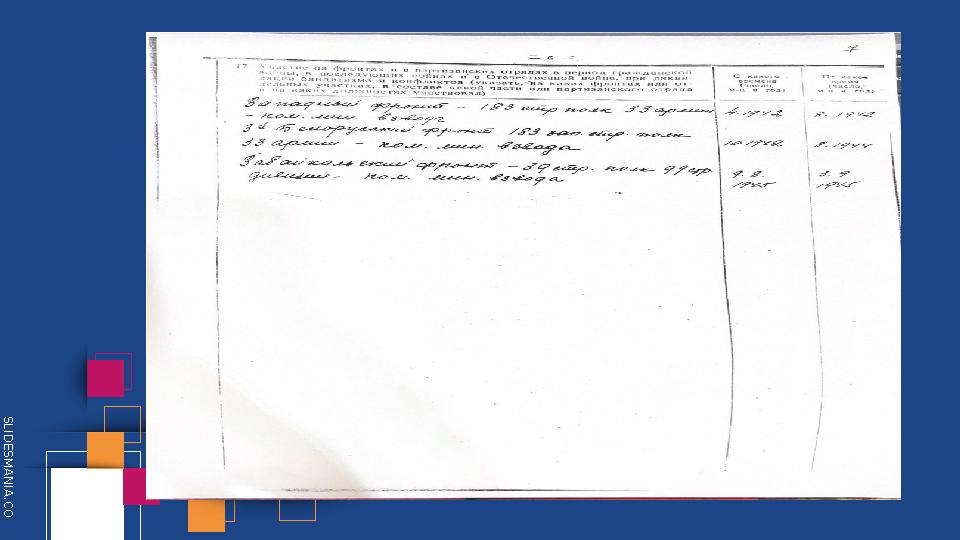 7
– 6 –
17. Участие на фронтах и в партизанских отрядах в период Гражданской
войны, в последующих войнах и в Отечественной войне, при ликви-
дации бандитизма и конфликтов (указать, на каких фронтах или от-
дельных участках, в составе какой части или партизанского отряда
и на каких должностях участвовал)
С какого
времени
(число,
м-ц и год)
По какое
время
(число,
м-ц и год)
Западный фронт – 183 стр полк 33 армии
4.1942
8.1942
– ком. мин. взвода
3й Белорусский фронт 183 зап. стр. полк
33 армии – ком. мин. взвода
10.1942
8.1944
Забайкальский фронт – стр. полк
9.8.
3.9
дивизии – ком. мин. взвода
1945
1945
SLIDESMANIA.CO